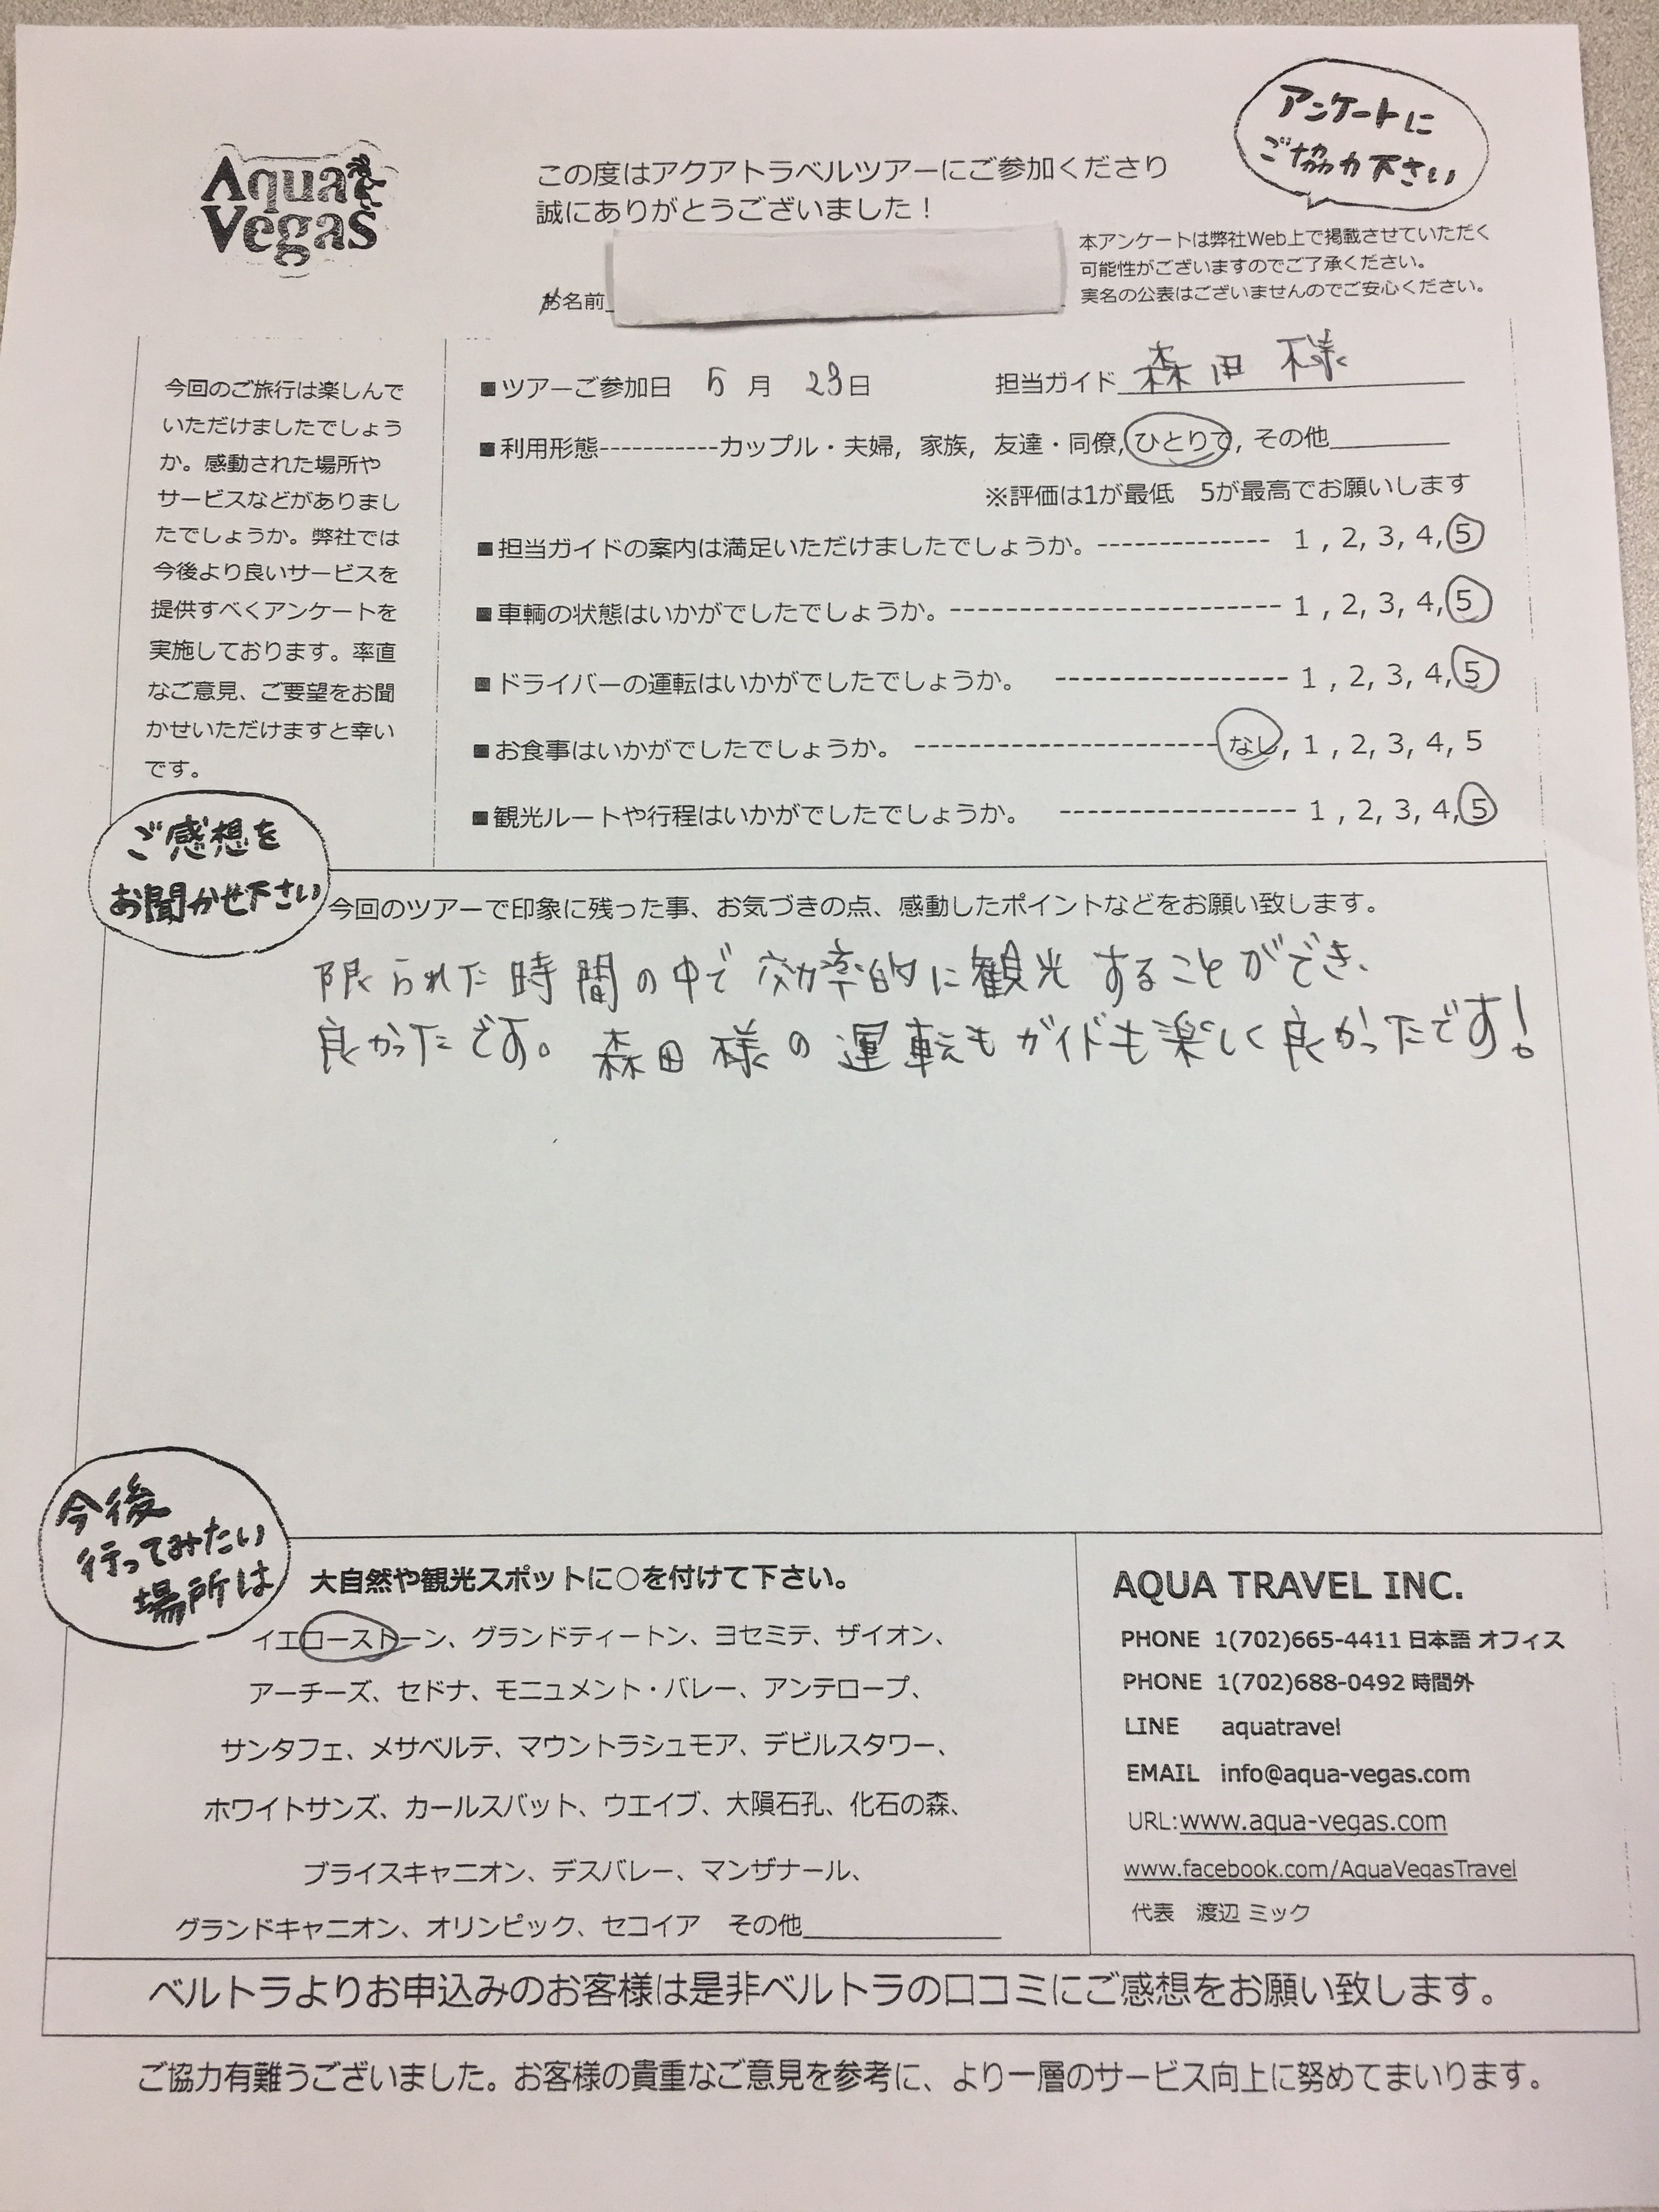 Aqua
Vegas
この度はアクアトラベルツアーにご参加くださり
誠にありがとうございました！
アンケートに
ご協力下さい
本アンケートは弊社Web上で掲載させていただく
可能性がございますのでご了承ください。
実名の公表はございませんのでご安心ください。
お名前
今回のご旅行は楽しんで
いただけましたでしょう
か。感動された場所や
サービスなどがありまし
たでしょうか。弊社では
今後より良いサービスを
提供すべくアンケートを
実施しております。率直
なご意見、ご要望をお聞
かせいただけますと幸い
です。
■ツアーご参加日 5月 23日 担当ガイド 森田 様
■利用形態-----------カップル・夫婦, 家族, 友達・同僚, ひとりで, その他
※評価は1が最低 5が最高でお願いします
■担当ガイドの案内は満足いただけましたでしょうか。-------------- 1 , 2, 3, 4, 5
■車輌の状態はいかがでしたでしょうか。----------------------- 1 , 2, 3, 4, 5
■ドライバーの運転はいかがでしたでしょうか。 ----------------- 1 , 2, 3, 4, 5
■お食事はいかがでしたでしょうか。 ---------------------なし, 1 , 2, 3, 4, 5
■観光ルートや行程はいかがでしたでしょうか。 ----------------- 1 , 2, 3, 4, 5
ご感想を
お聞かせ下さい
今回のツアーで印象に残った事、お気づきの点、感動したポイントなどをお願い致します。
限られた時間の中で効率的に観光することができ、
良かったです。森田様の運転もガイドも楽しく良かったです！
今後
行ってみたい
場所は
大自然や観光スポットに○を付けて下さい。
イエローストーン、グランドティートン、ヨセミテ、ザイオン、
アーチーズ、セドナ、モニュメント・バレー、アンテロープ、
サンタフェ、メサベルテ、マウントラシュモア、デビルスタワー、
ホワイトサンズ、カールスバット、ウエイブ、大隕石孔、化石の森、
ブライスキャニオン、デスバレー、マンザナール、
グランドキャニオン、オリンピック、セコイア その他
AQUA TRAVEL INC.
PHONE 1(702)665-4411 日本語 オフィス
PHONE 1(702)688-0492 時間外
LINE aquatravel
EMAIL info@aqua-vegas.com
URL:www.aqua-vegas.com
www.facebook.com/AquaVegasTravel
代表 渡辺 ミック
ベルトラよりお申込みのお客様は是非ベルトラの口コミにご感想をお願い致します。
ご協力有難うございました。お客様の貴重なご意見を参考に、より一層のサービス向上に努めてまいります。